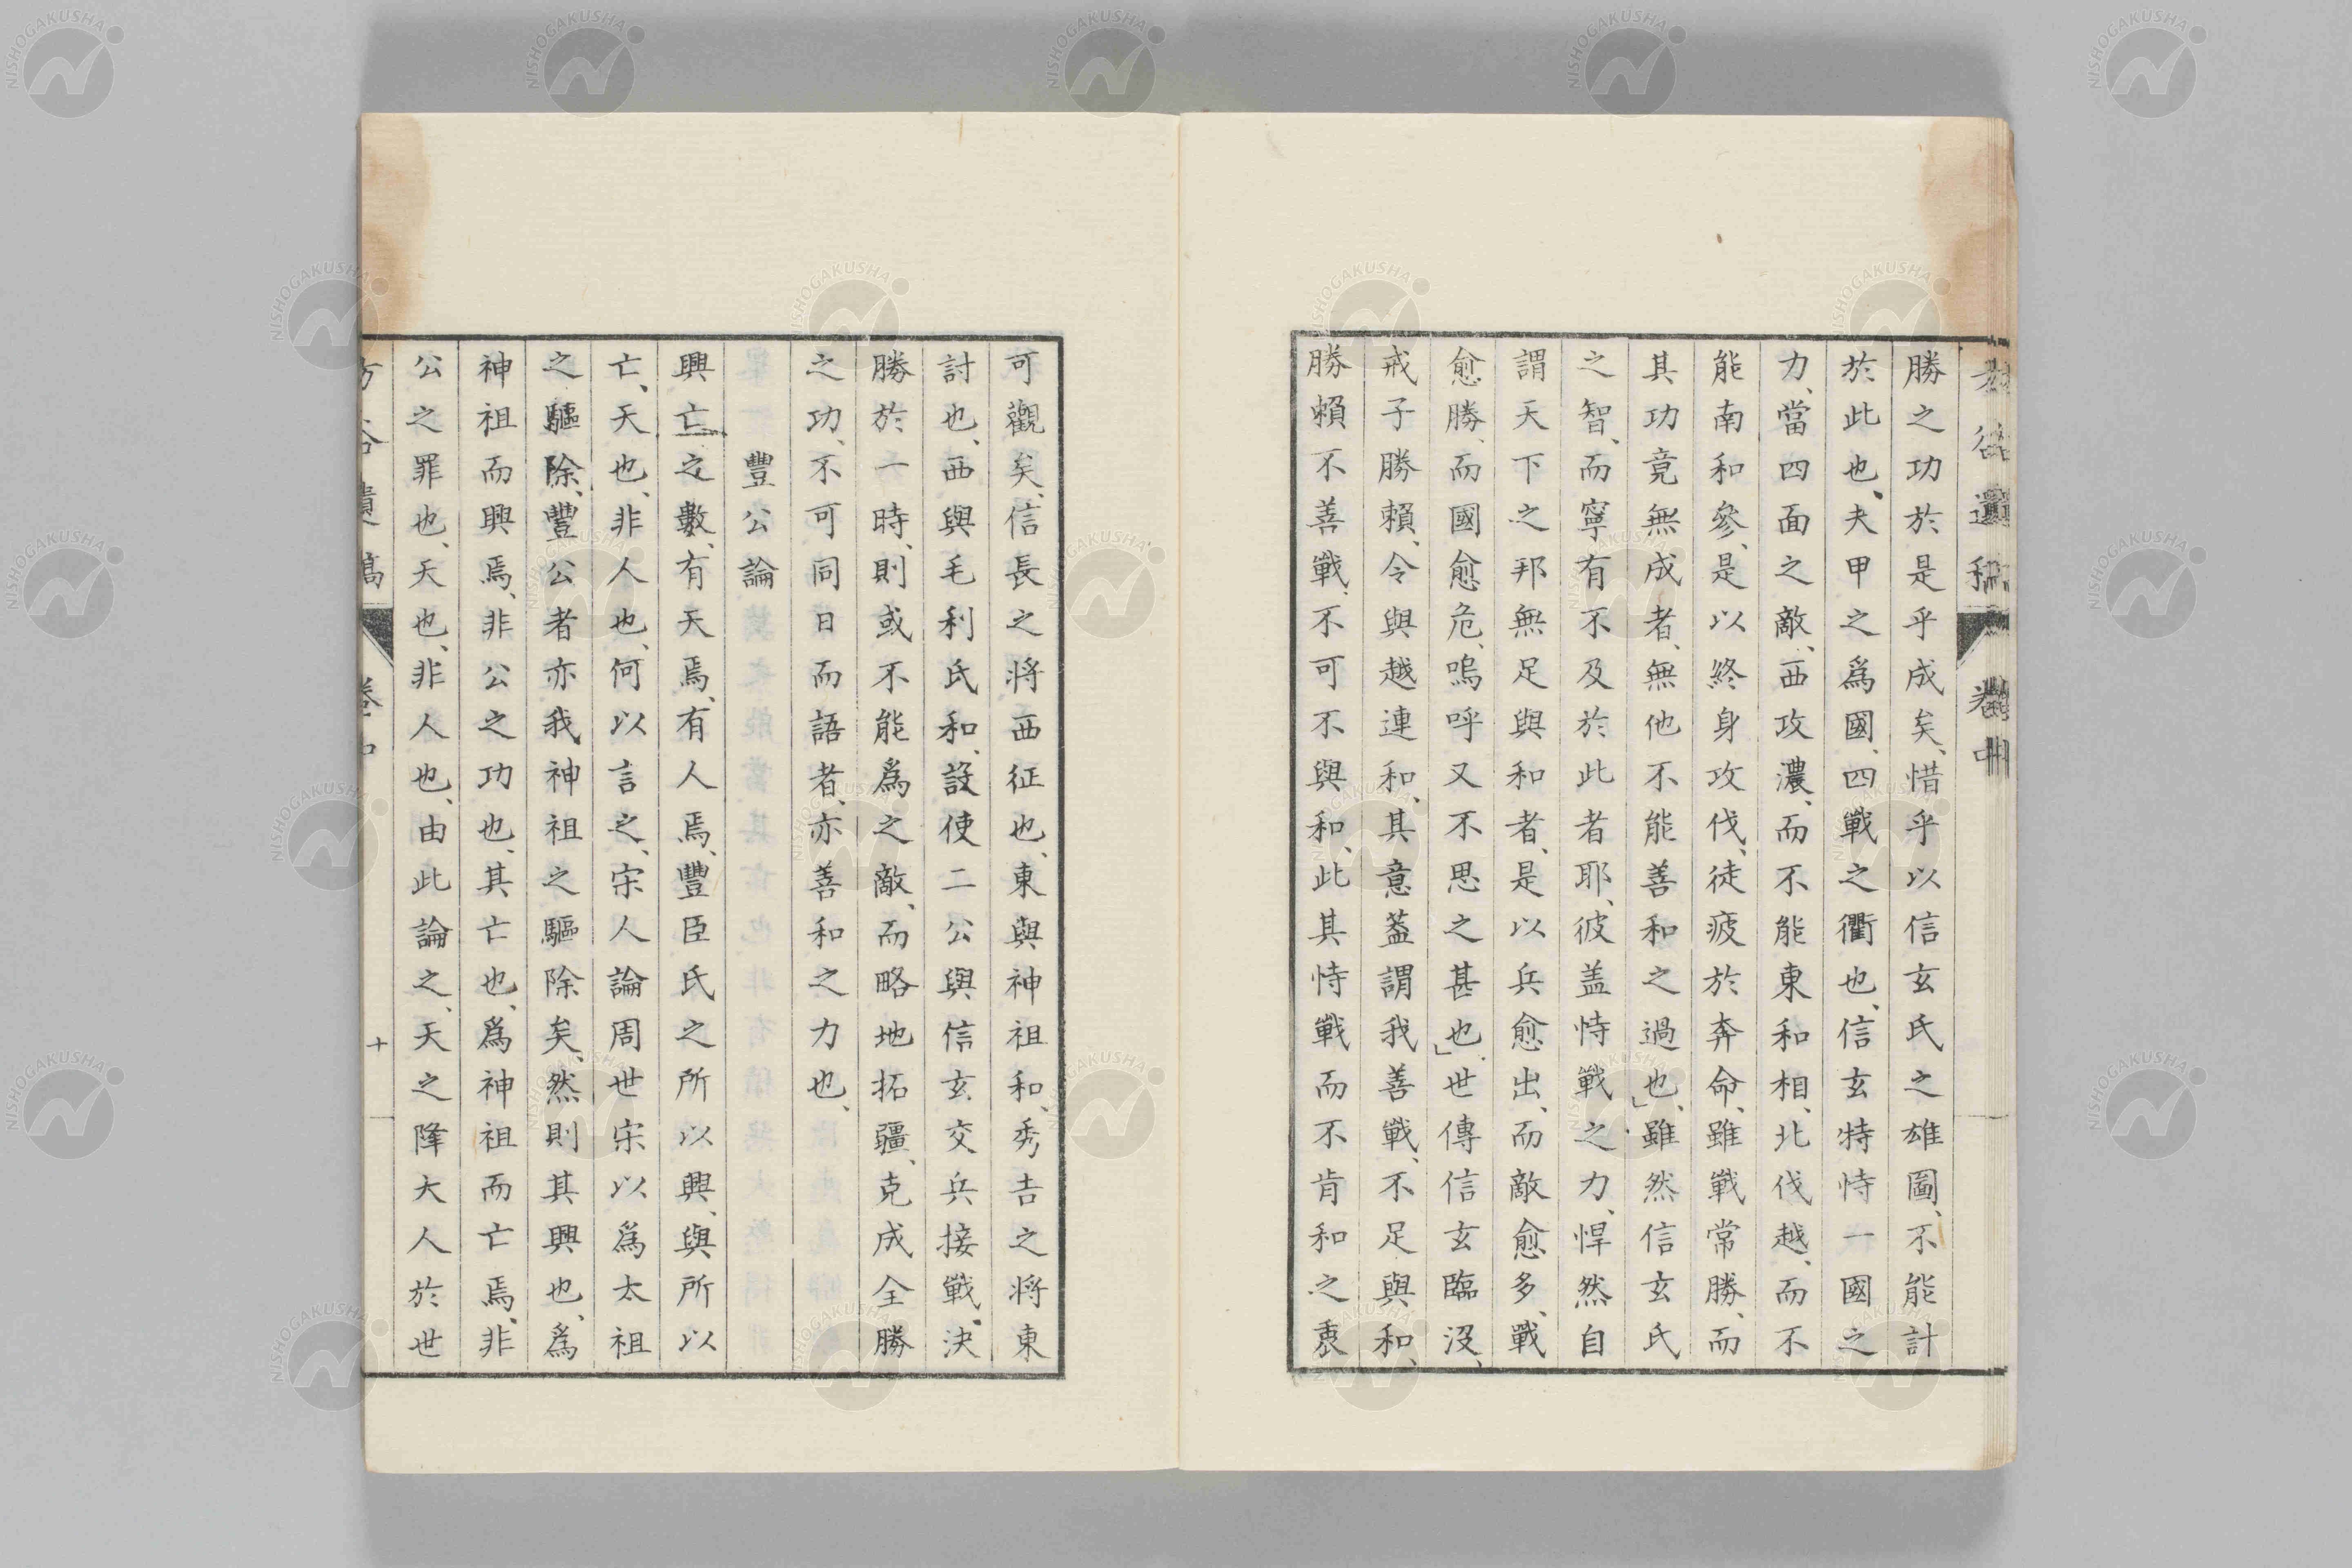 方谷遺稿 卷中
勝之功於是乎成矣、惜乎以信玄氏之雄圖、不能計
於此也、夫甲之爲國、四戰之衢也、信玄特恃一國之
力、當四面之敵、西攻濃、而不能東和相、北伐越、而不
能南和參、是以終身攻伐、徒疲於奔命、雖戰常勝、而
其功竟無成者、無他不能善和之過也」、雖然信玄氏
之智、而寧有不及於此者耶、彼盖恃戰之力、悍然自
謂天下之邦無足與和者、是以兵愈出、而敵愈多、戰
愈勝、而國愈危、嗚呼又不思之甚也」、世傳信玄臨沒、
戒子勝賴、令與越連和、其意葢謂我善戰、不足與和、
勝賴不善戰、不可不與和、此其恃戰而不肯和之衷
可觀矣、信長之將西征也、東與神祖和、秀吉之將東
討也、西與毛利氏和、設使二公與信玄交兵接戰、決
勝於一時、則或不能爲之敵、而略地拓疆、克成全勝
之功、不可同日而語者、亦善和之力也、
豐公論
興亡之數、有天焉、有人焉、豐臣氏之所以興、與所以
亡、天也、非人也、何以言之、宋人論周世宗以爲太祖
之驅除、豐公者亦我神祖之驅除矣、然則其興也、爲
神祖而興焉、非公之功也、其亡也、爲神祖而亡焉、非
公之罪也、天也、非人也、由此論之、天之降大人於世
方谷遺稿 卷中 十